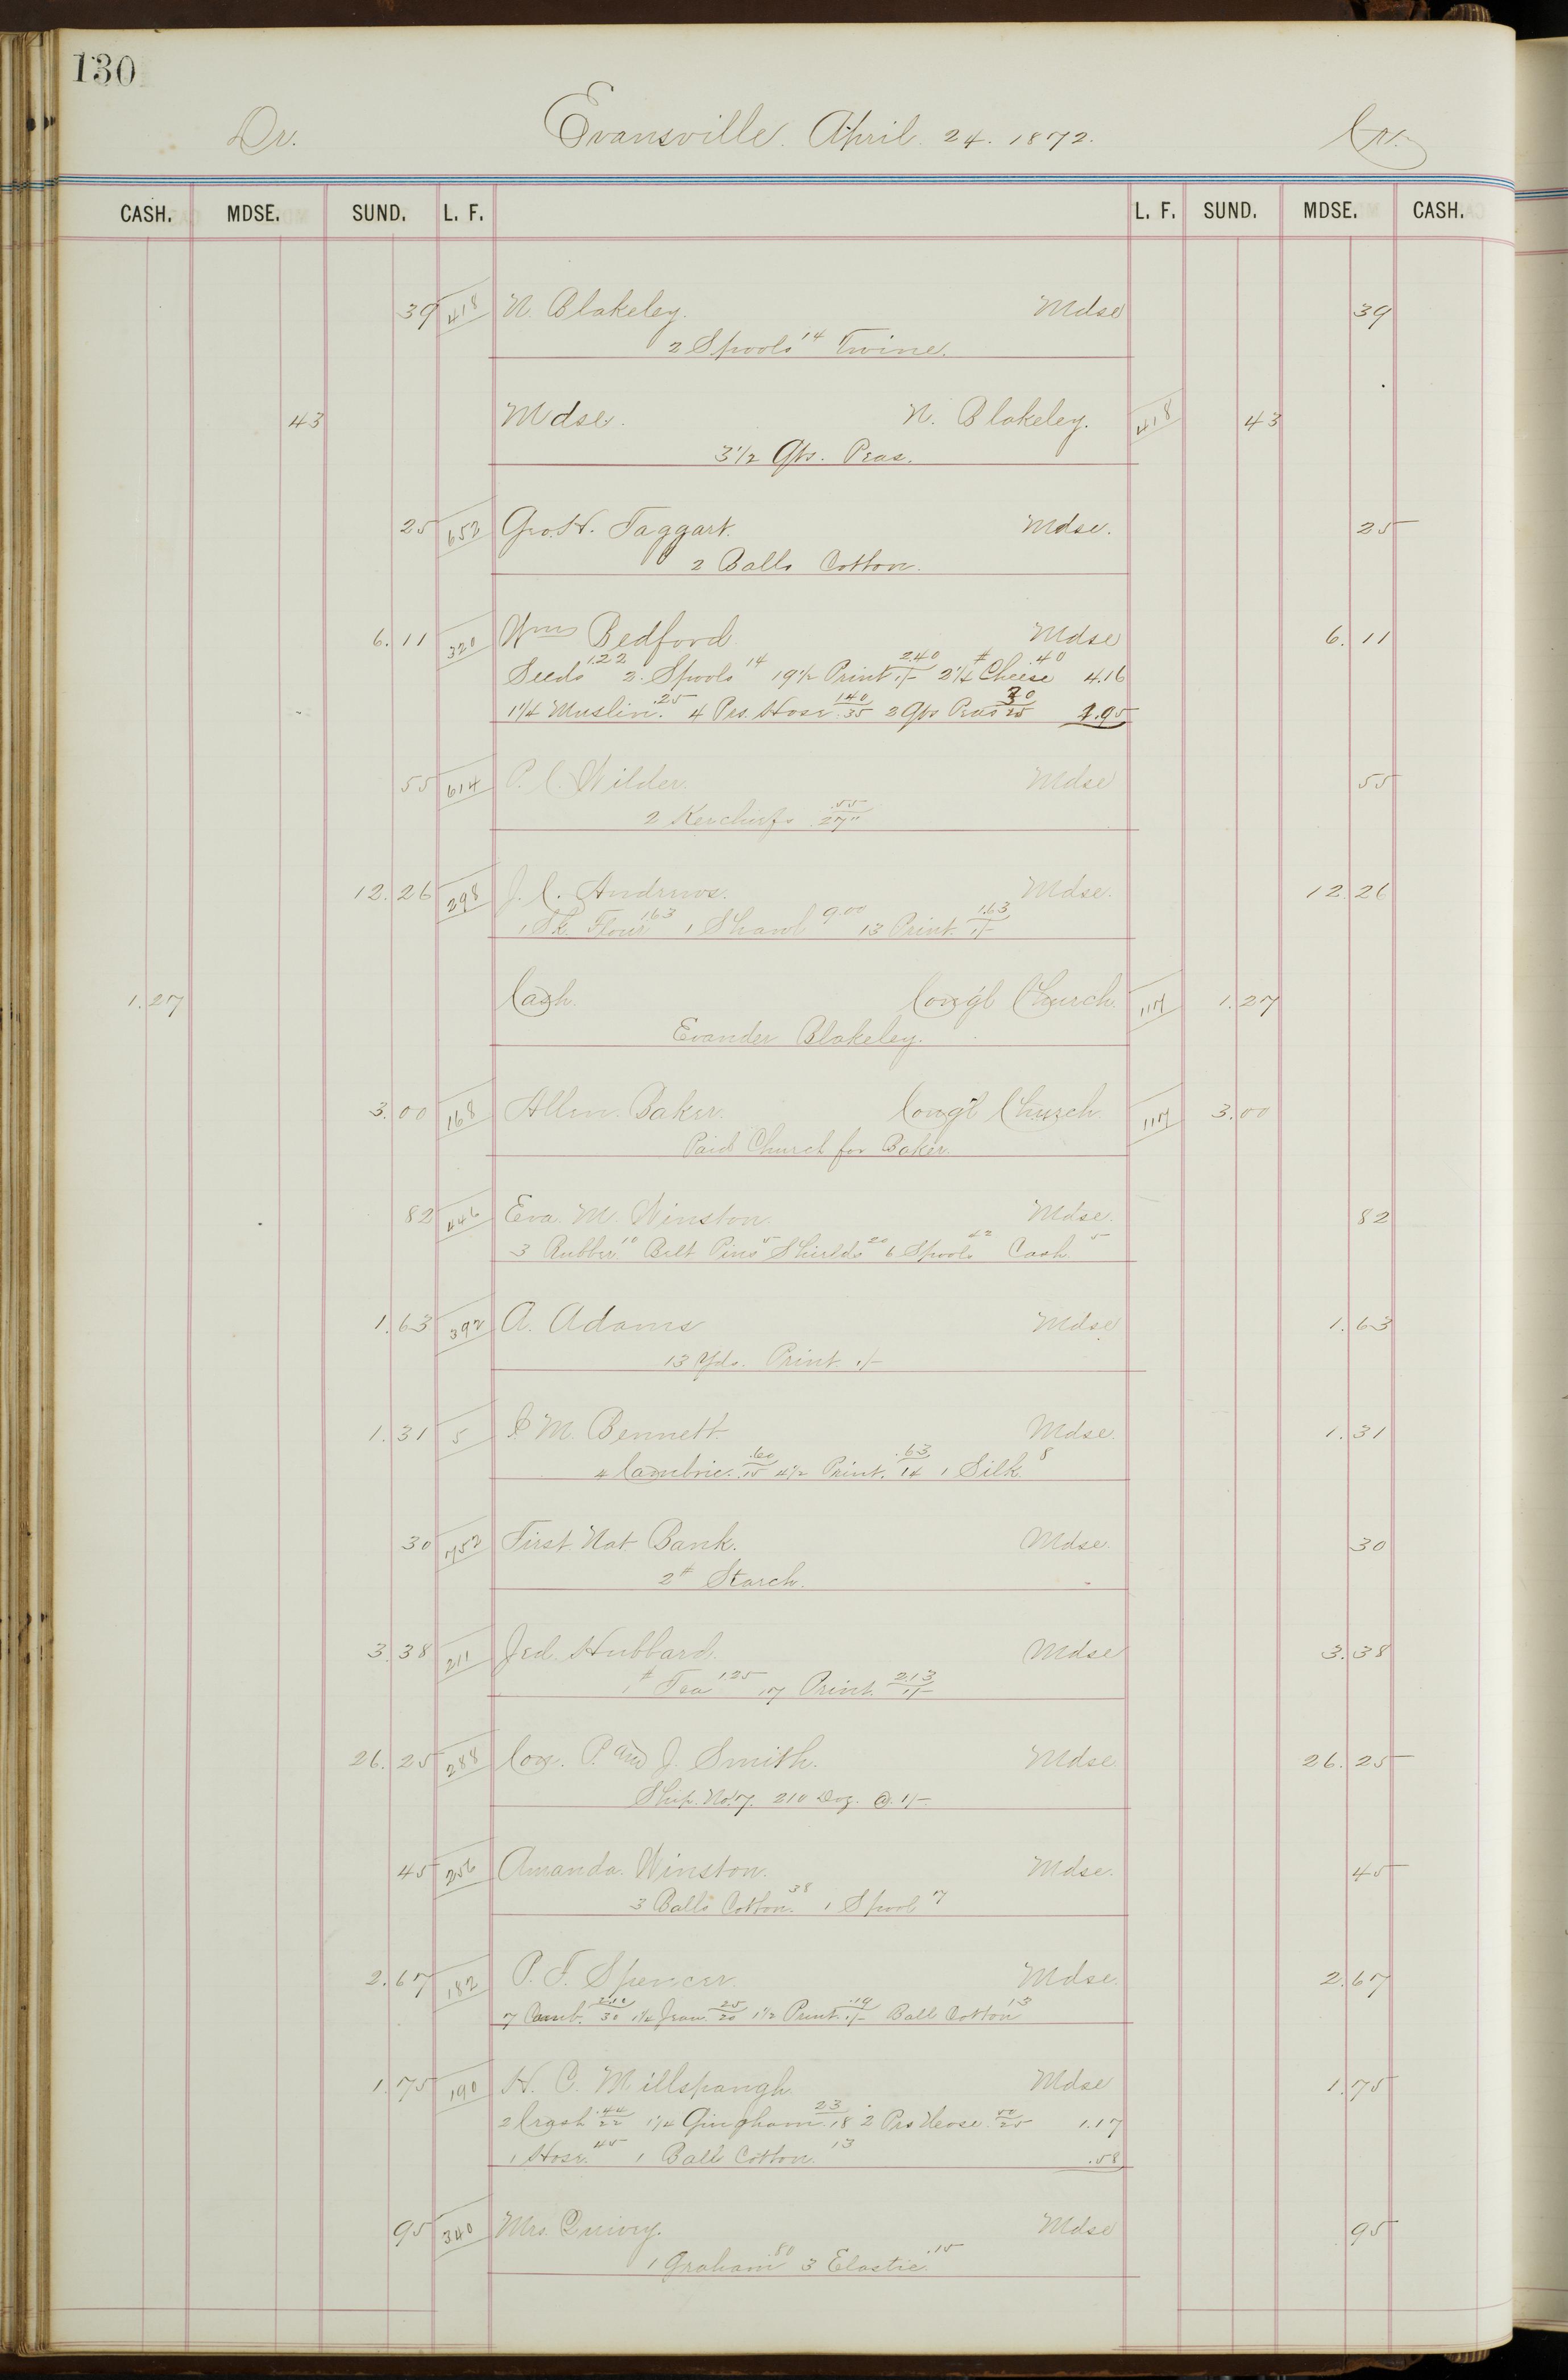 130
Dr. Evansville. April. 24. 1872. Cr.
CASH. MDSE. SUND. L. F. L. F. SUND. MDSE. CASH.
39 418 N. Blakeley. Mdse 39
2 Spools 14 Twine.
43 Mdse. N. Blakeley. 418 43
3 1/2 Qts. Peas.
25 652 Geo. H. Taggart. Mdse. 25
2 Balls Cotton.
6.11 320 Wm Bedford Mdse 6.11
Seeds 1.22 2 Spools 14 19 1/2 Print 2.40 1/- 2 1/4 # Cheese .40 4.16
1 1/4 Muslin. .25 4 Prs. Hose 1.40 .35 2 Qts Peas 30 25 1.95
55 614 P. C. Wilder. Mdse 55
2 Kerchiefs .55 .27"
12.26 298 J. C. Andrews. Mdse. 12.26
1 Sk. Flour 1.63 1 Shawl 9.00 13 Print. 1.63 1/-
1.27 Cash. Cong'l Church. 117 1.27
Evander Blakeley.
3.00 168 Allen. Baker. Cong'l Church. 117 3.00
Paid Church for Baker.
82 446 Eva. M. Winston. Mdse. 82
3 Rubber 10 Belt Pins 5 Shields 20 6 Spools 42 Cash 5
1.63 392 A. Adams Mdse 1.63
13 Yds. Print 1/-
1.31 5 M. Bennett. Mdse. 1.31
4 Cambric. .60 .15 4 1/2 Print. .63 14 1 Silk. 8
30 752 First Nat Bank. Mdse. 30
2# Starch.
3.38 211 Jed. Hubbard. Mdse 3.38
1# Tea 1.25 17 Print. 2.13 1/-
26.25 288 Cox. P. and J. Smith. Mdse. 26.25
Ship. No. 7. 210 Doz. @ 1/-
45 256 Amanda. Winston. Mdse. 45
3 Balls Cotton. 38 1 Spool 7
2.67 182 P. T. Spencer. Mdse. 2.67
7 Camb. 2.10 30 1 1/4 Jean. 25 20 1 1/2 Print. .19 1/- Ball Cotton 13
1.75 190 H. C. Millspaugh. Mdse 1.75
2 Crash .44 22 1 1/4 Gingham 23 .18 2 Prs Hose .50 25 1.17
1 Hose. 45 1 Ball Cotton. 13 .58
95 340 Mrs. Quivey. Mdse 95
1 Graham 80 3 Elastic. .15